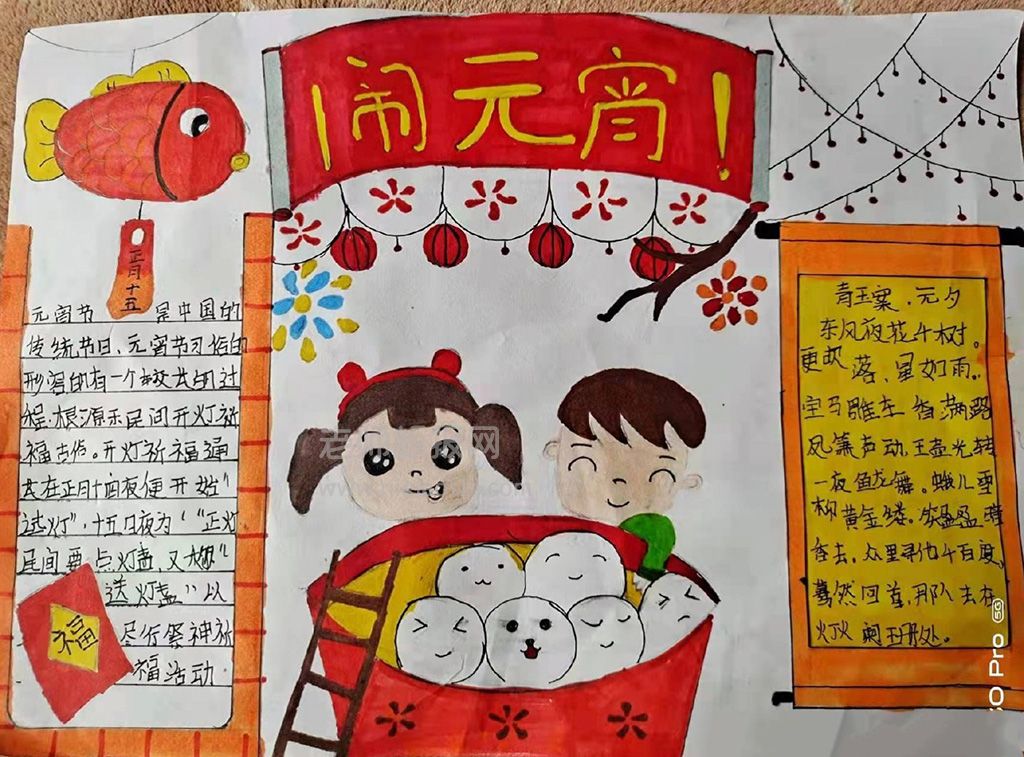 闹元宵！
正月十五
元宵节 是中国的
传统节日、元宵节习俗的
形容的有一个较长的过
程.根源示民间开灯祈
福古俗。开灯祈福通
去在正月十四夜便开始"
试灯"，十五日夜为"正灯
民间要点灯盏，又
"送灯盏"以
尽行祭神祈
福活动.
福
青玉案.元夕
东风夜花千树。
更吹落、星如雨。
宝马雕车香满路
凤箫声动,玉壶光转
一夜鱼龙舞。蛾儿雪
柳黄金缕。笑盈盈暗
香去。众里寻他千百度,
蓦然回首,那人去在
灯火阑珊处。
Pro 5G